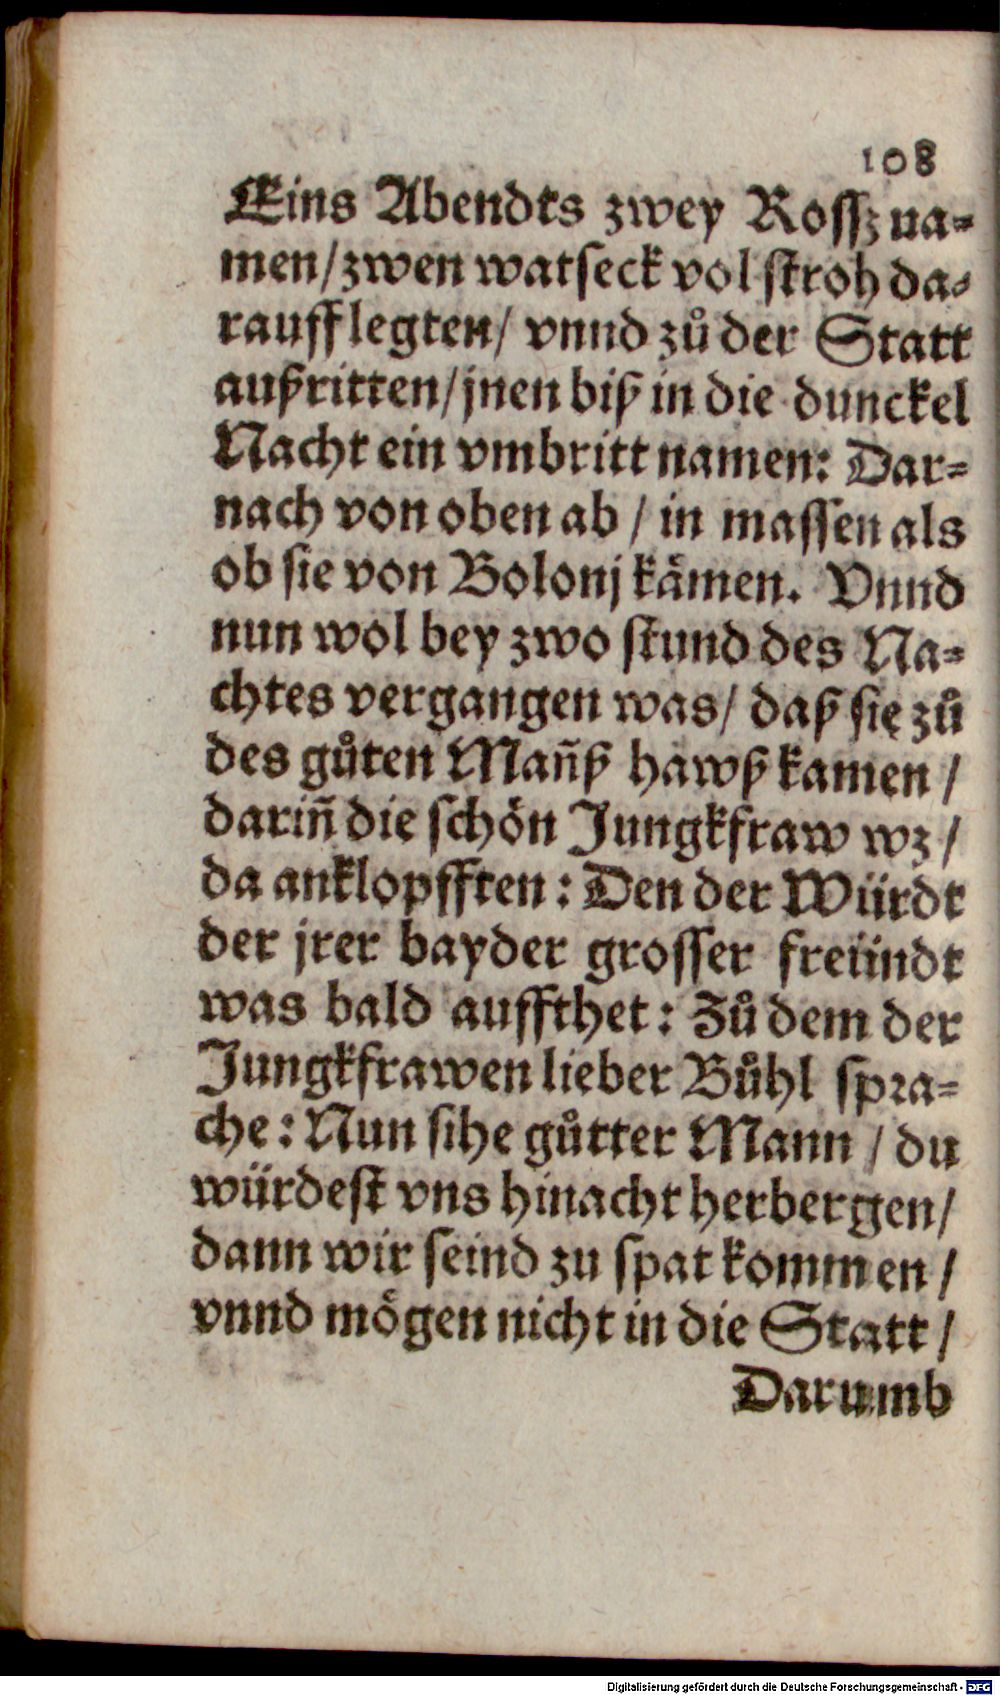 108
Eins Abendts zwey Rossz na-
men/zwen watseck vol stroh da-
raufflegten/ vnnd zů der Statt
außritten/jnen biß in die dunckel
Nacht ein vmbritt namen: Dar-
nach von oben ab / in massen als
ob sie von Bolonj kämen. Vnnd
nun wol bey zwo stund des Na-
chtes vergangen was/ daß sie zů
des gůten Mañß hawß kamen /
dariñ die schön Jungkfraw wz /
da anklopfften: Den der Würdt
der jrer bayder grosser freündt
was bald auffthet: Zů dem der
Jungkfrawen lieber Bůhl spra-
che: Nun sihe gůtter Mann / du
würdest vns hinacht herbergen/
dann wir seind zu spat kommen /
vnnd mögen nicht in die Statt /
Darumb
Digitalisierung gefördert durch die Deutsche Forschungsgemeinschaft - DFG